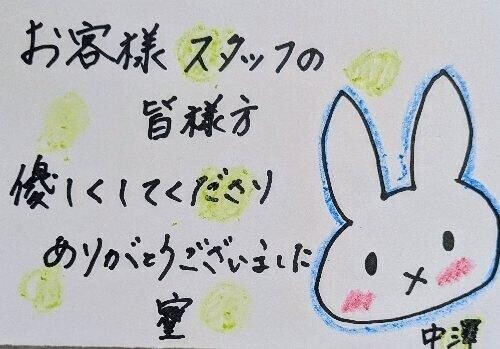 お客様 スタッフの
皆様方
優しくしてくださり
ありがとうございました
室
中澤